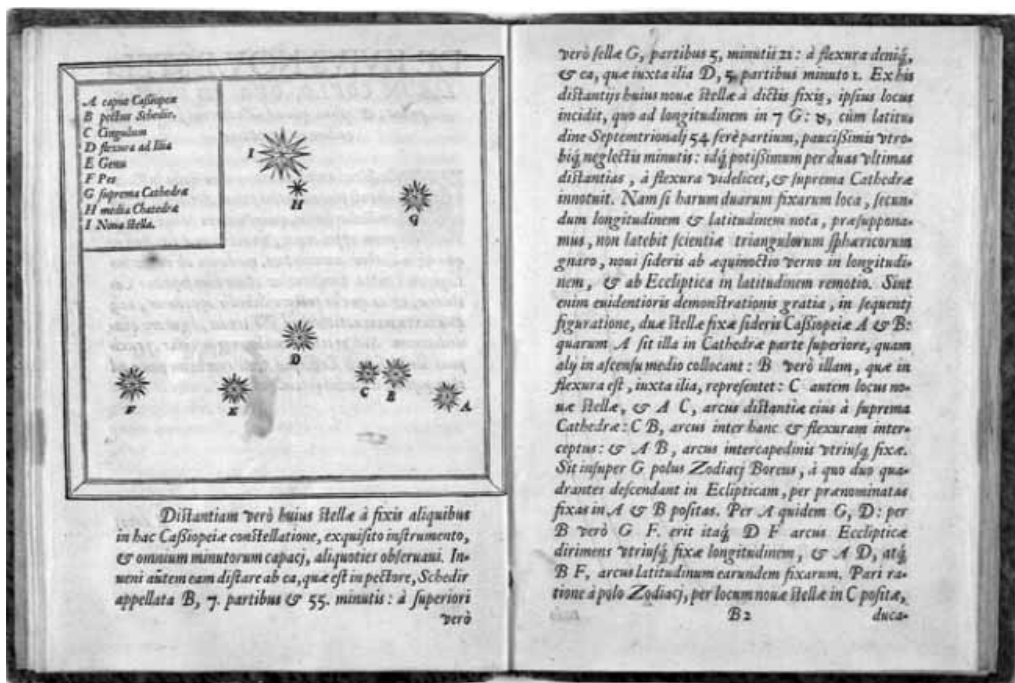 A caput Cassiopeæ
B pectus Schedir.
C Cingulum
D flexura ad Ilia
E Genu
F Pes
G suprema Cathedræ
H media Chatedræ
I Nova stella.
I
H
G
D
C
B
A
E
F
Distantiam verò huius stellæ à fixis aliquibus
in hac Cassiopeiæ constellatione, exquisito instrumento,
& omnium minutorum capacj, aliquoties obseruaui. In-
ueni autem eam distare ab ea, quæ est in pectore, Schedir
appellata B, 7. partibus & 55. minutis : à superiori
verò
verò stellæ G, partibus 5, minutis 21 : à flexura deniq́,
& ea, quæ iuxta ilia D, 5, partibus minuto 1. Ex his
distantijs huius nouæ stellæ à dictis fixis, ipsius locus
incidit, quo ad longitudinem in 7 G: ♉, cùm latitu
dine Septemtrionalj 54 ferè partium, paucissimis vtro-
biq́ neglectis minutis : idq́ potissimum per duas vltimas
distantias, à flexura videlicet, & suprema Cathedræ
innotuit. Nam si harum duarum fixarum loca, secun-
dum longitudinem & latitudinem nota, præsuppona-
mus, non latebit scientiæ triangulorum sphæricorum
gnaro, noui sideris ab æquinoctio verno in longitudi-
nem, & ab Eccliptica in latitudinem remotio. Sint
enim euidentioris demonstrationis gratia, in sequentj
figuratione, duæ stellæ fixæ sideris Cassiopeiæ A & B:
quarum A sit illa in Cathedræ parte superiore, quam
alij in ascensu medio collocant : B verò illam, quæ in
flexura est, iuxta ilia, repræsentet : C autem locus no-
uæ stellæ, & A C, arcus distantiæ eius à suprema
Cathedræ : C B, arcus inter hanc & flexuram inter-
ceptus : & A B, arcus intercapedinis vtriusq́ fixæ.
Sit insuper G polus Zodiacj Boreus, à quo duo qua-
drantes descendant in Eclipticam, per prænominatas
fixas in A & B positas. Per A quidem G, D : per
B verò G F. erit itaq́ D F arcus Eclipticæ
dirimens vtriusq́ fixæ longitudinem, & A D, atq́
B F, arcus latitudinum earundem fixarum. Pari ra-
tione à polo Zodiacj, per locum nouæ stellæ in C positæ,
B 2
duca-